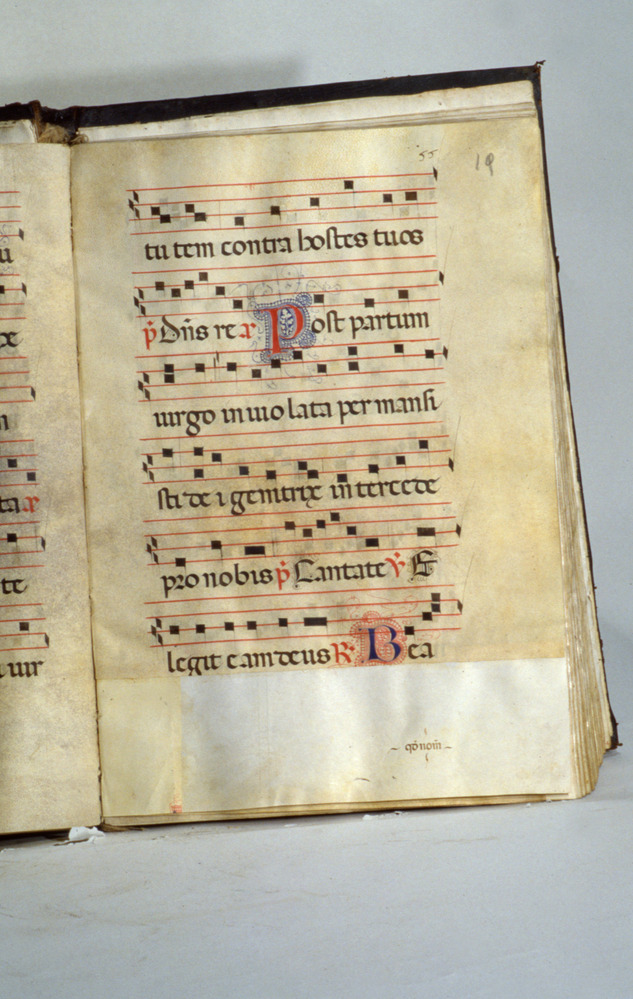 55 19
tu tem contra hostes tuos
p̃ Dñs re a Post partum
uirgo in uio lata per mansi
sti de i genitrix in tercede
pro nobis p̃ Cantate ꝟ E
legit eam deus R Bea
qd̃ nom̃
u
xe
n
ta a
te
uir